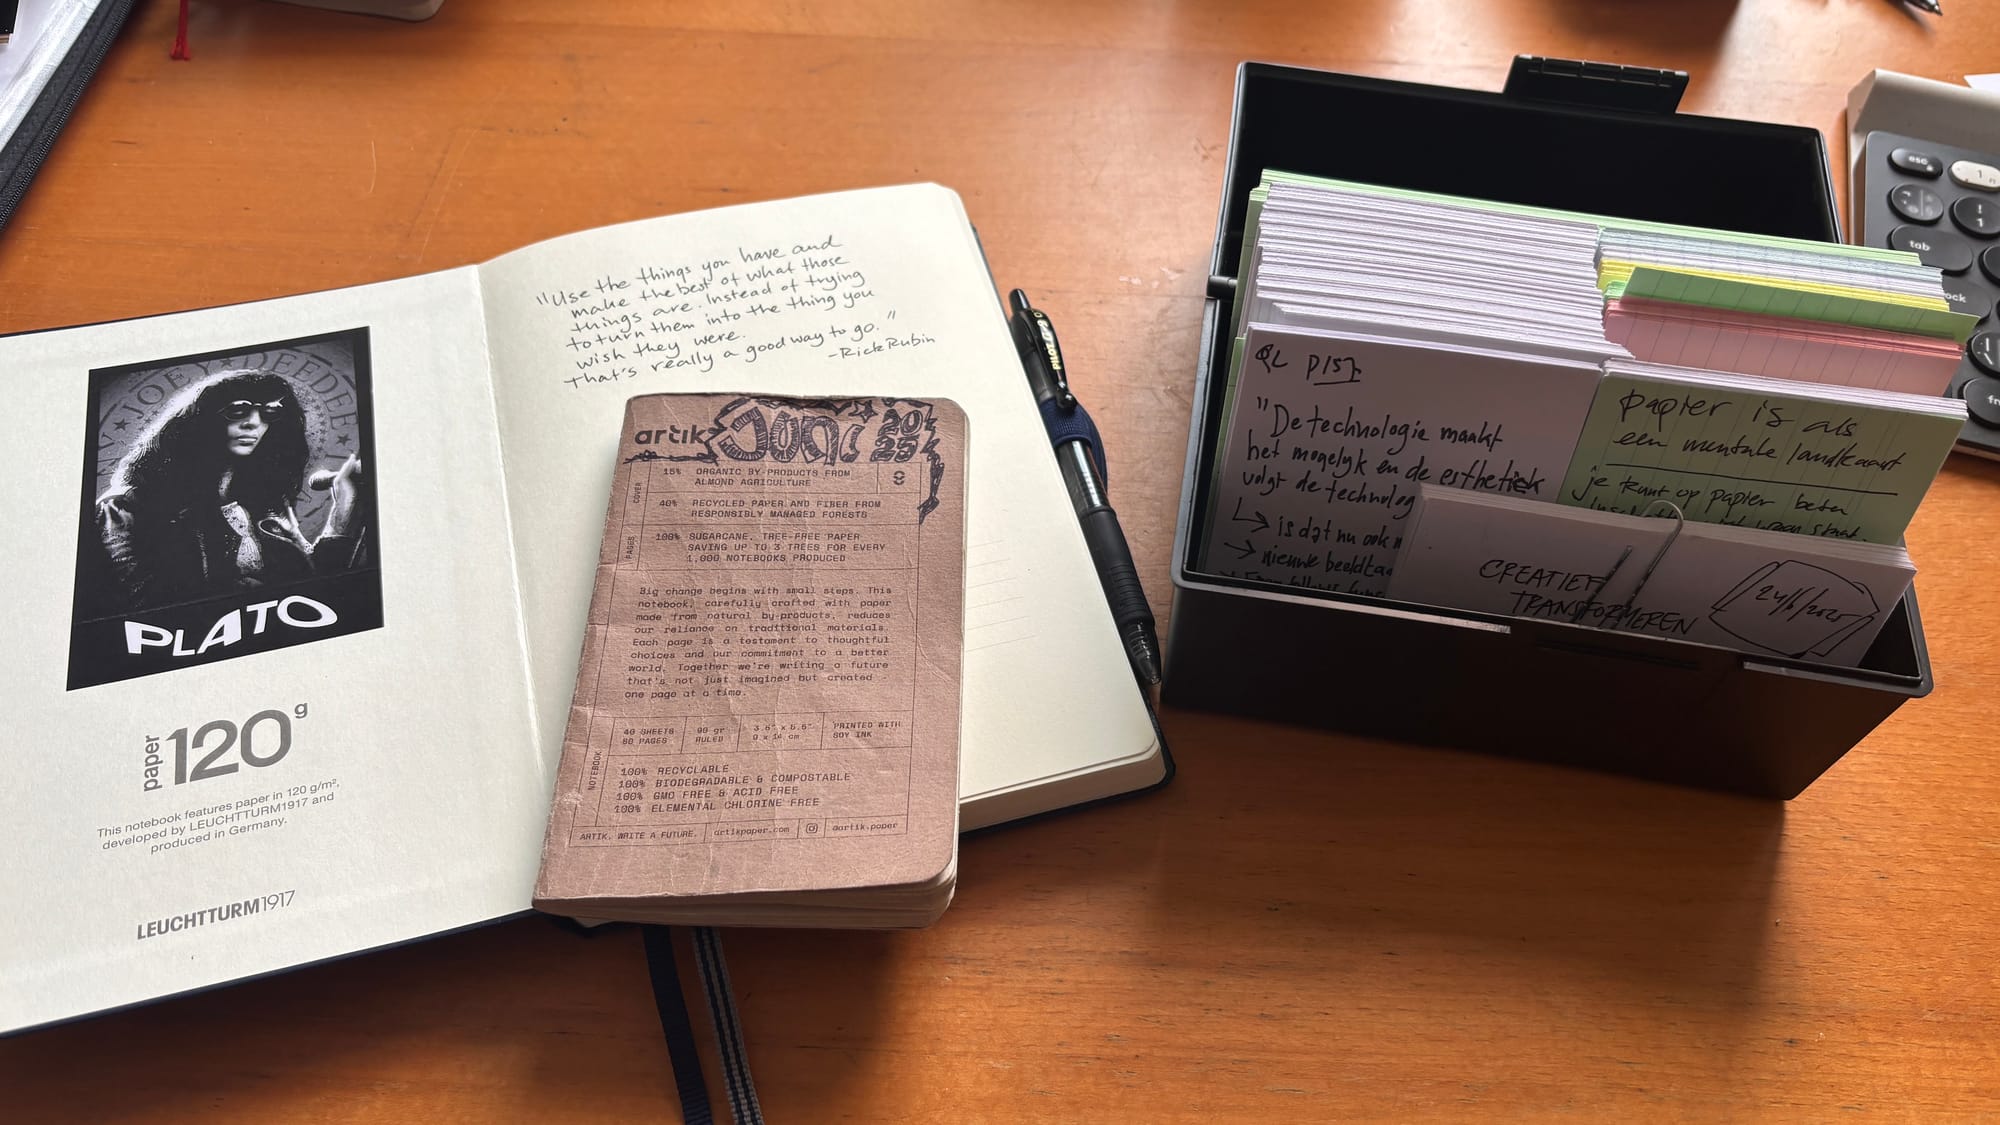 JOEY
DEEDEE
PLATO
paper 120g
This notebook features paper in 120 g/m²,
developed by LEUCHTTURM1917 and
produced in Germany.
LEUCHTTURM1917
"Use the things you have and
make the best of what those
things are. Instead of trying
to turn them into the thing you
wish they were.
That's really a good way to go."
-Rick Rubin
artik
Juni 2025
COVER
15% ORGANIC BY-PRODUCTS FROM
ALMOND AGRICULTURE
40% RECYCLED PAPER AND FIBER FROM
RESPONSIBLY MANAGED FORESTS
PAGES
100% SUGARCANE, TREE-FREE PAPER
SAVING UP TO 3 TREES FOR EVERY
1,000 NOTEBOOKS PRODUCED
Big change begins with small steps. This
notebook, carefully crafted with paper
made from natural by-products, reduces
our reliance on traditional materials.
Each page is a testament to thoughtful
choices and our commitment to a better
world. Together we're writing a future
that's not just imagined but created -
one page at a time.
NOTEBOOK
40 SHEETS
80 PAGES
90 gr
RULED
3.5" x 5.5"
9 x 14 cm
PRINTED WITH
SOY INK
100% RECYCLABLE
100% BIODEGRADABLE & COMPOSTABLE
100% GMO FREE & ACID FREE
100% ELEMENTAL CHLORINE FREE
ARTIK. WRITE A FUTURE.
artikpaper.com
@artik.paper
PILOT
QL P157
"De technologie maakt
het mogelyk en de esthetiek
volgt de technolog
↳ is dat nu ook
→ nieuwe beeldtaa
papier is als
een mentale landkaart
je kunt op papier beter
CREATIEF
TRANSFORMEREN
24/6/2025
esc
1
!
1
tab
ock
fn